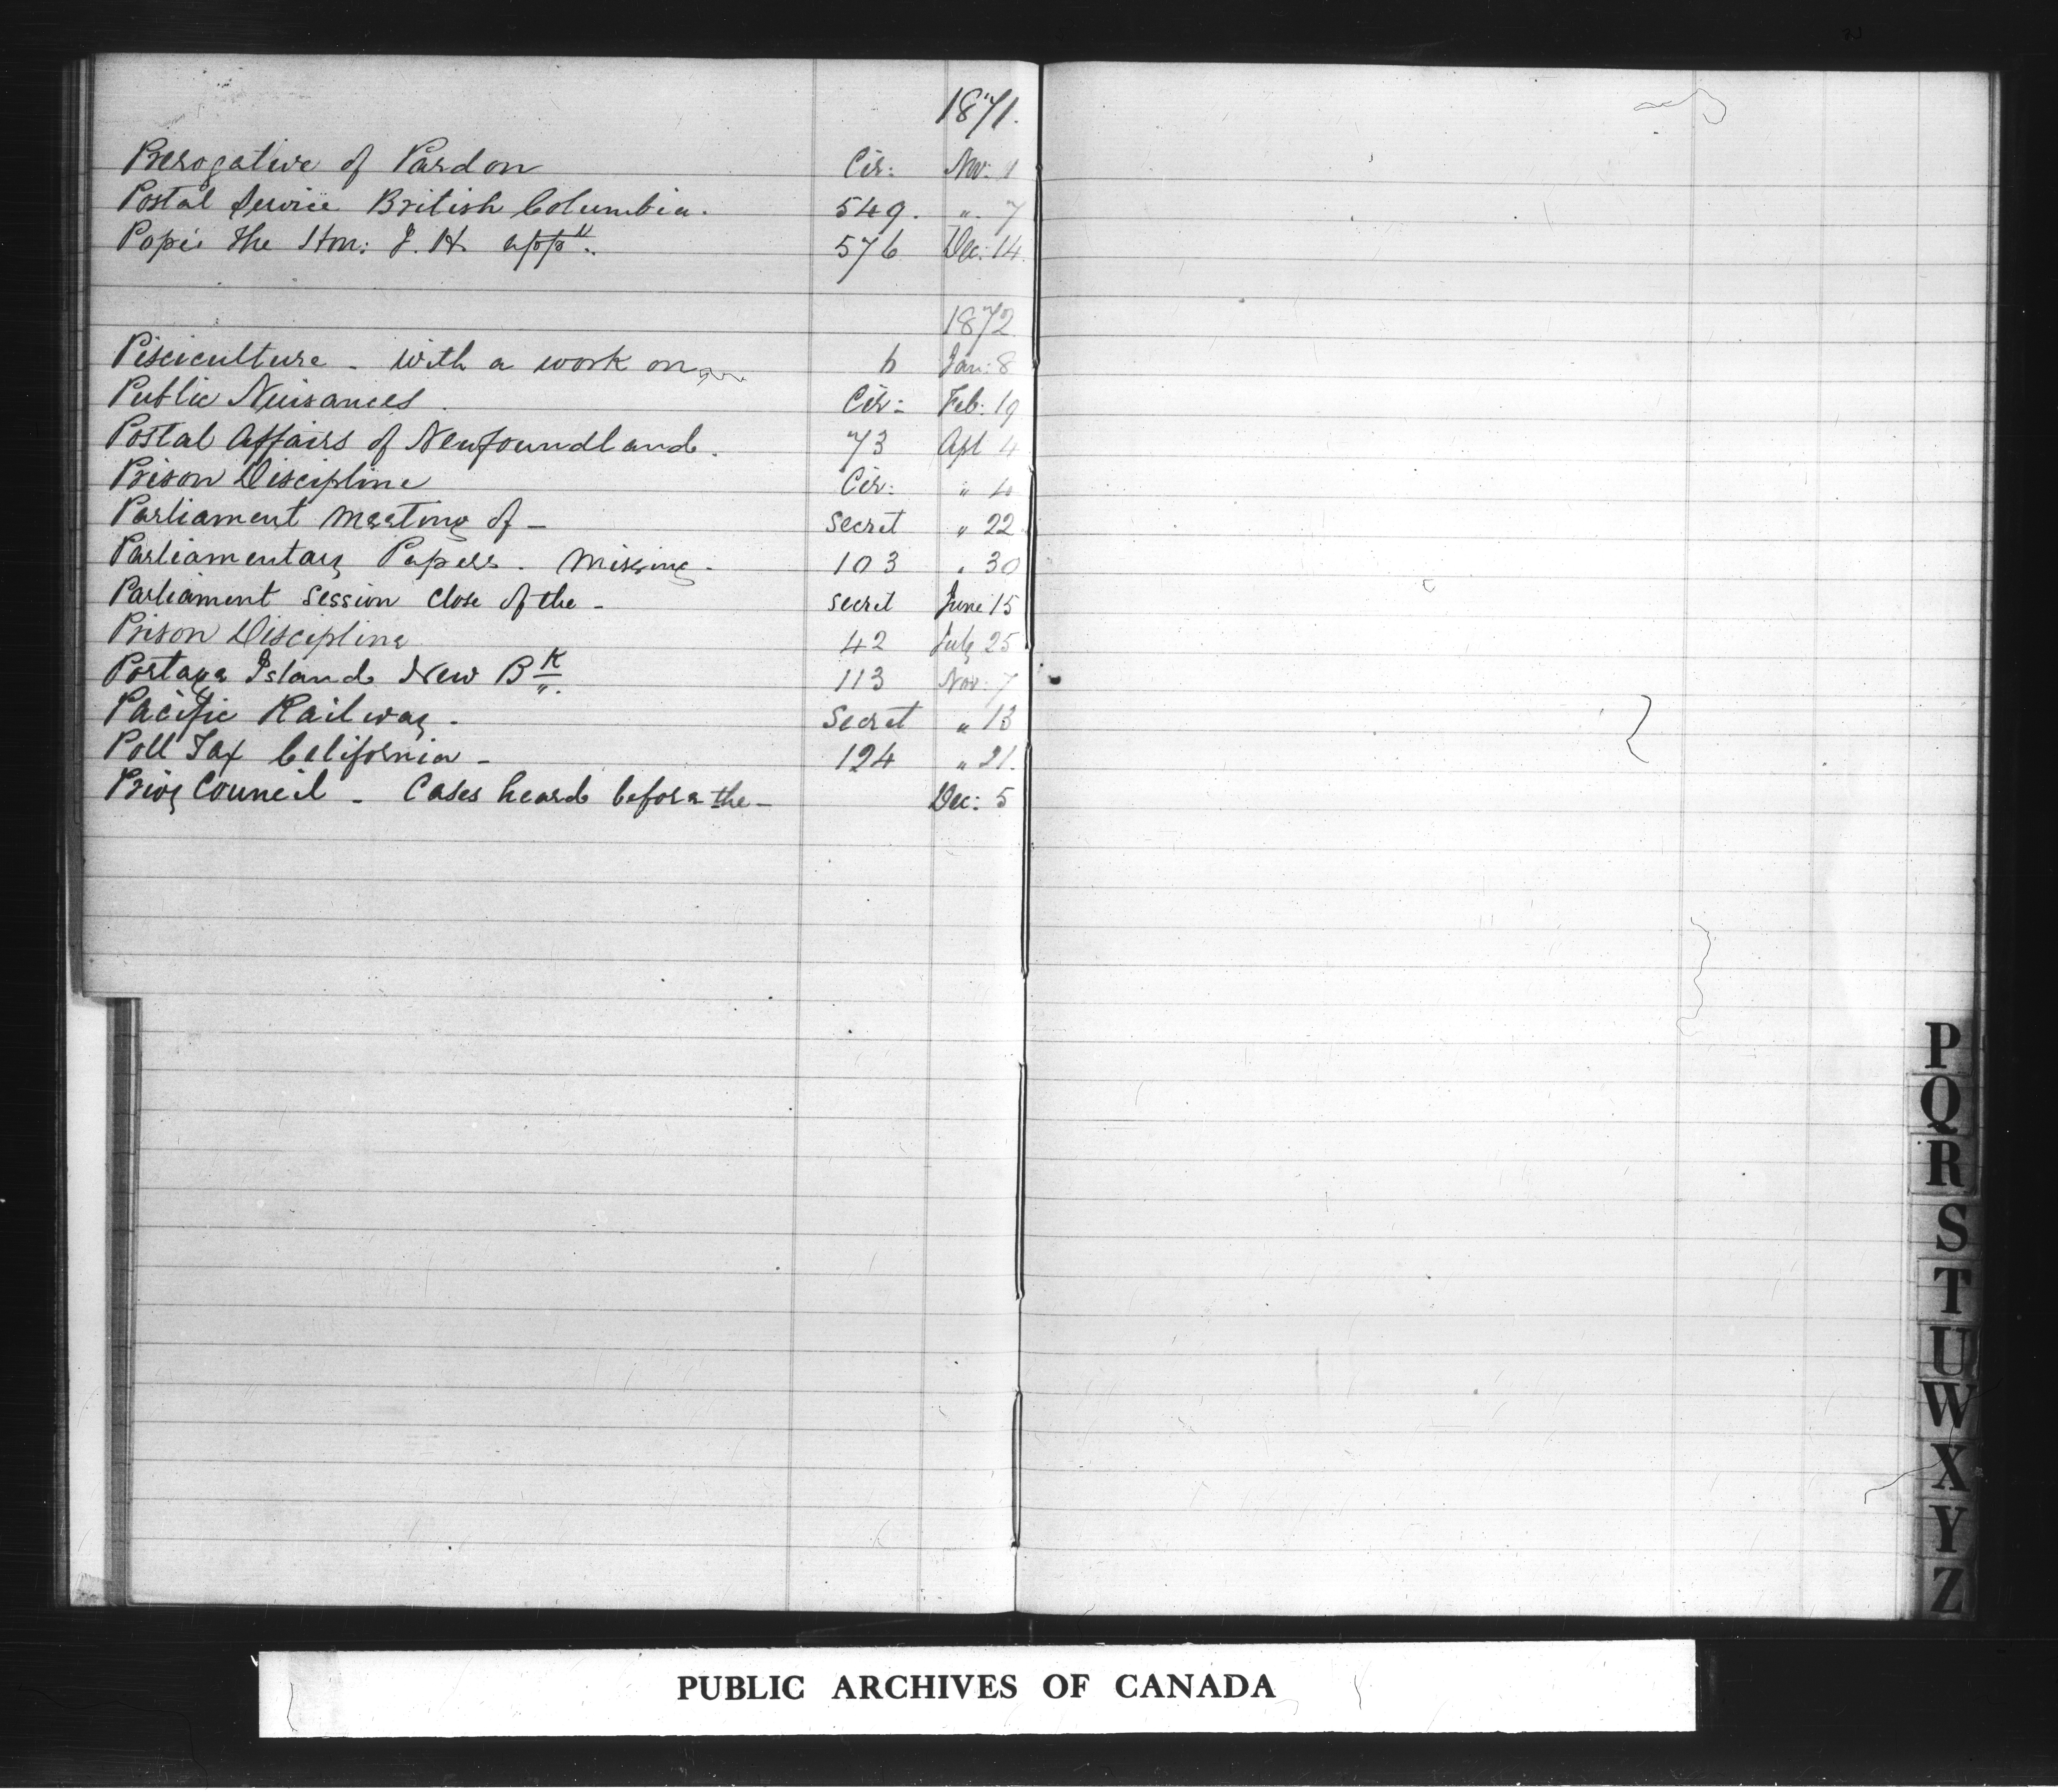 1871.
Prerogative of Pardon Cir: Nov: 1
Postal Service British Columbia. 549. " 7
Pope The Hon: J. H. app". 576 Dec: 14
1872
Pisciculture - with a work on 6 Jan: 8
Public Nuisances. Cir: Feb: 19
Postal Affairs of Newfoundland. 73 Apl 4
Prison Discipline Cir: " 4
Parliament Meeting of - Secret " 22
Parliamentary Papers. Missing. 103 " 30
Parliament Session Close of the - Secret June 15
Prison Discipline 42 July 25
Portage Island New BK. 113 Nov. 7
Pacific Railway. Secret " 13
Poll Tax California - 124 " 21.
Privy Council - Cases heard before the - Dec: 5
P
Q
R
S
T
U
W
X
Y
Z
PUBLIC ARCHIVES OF CANADA